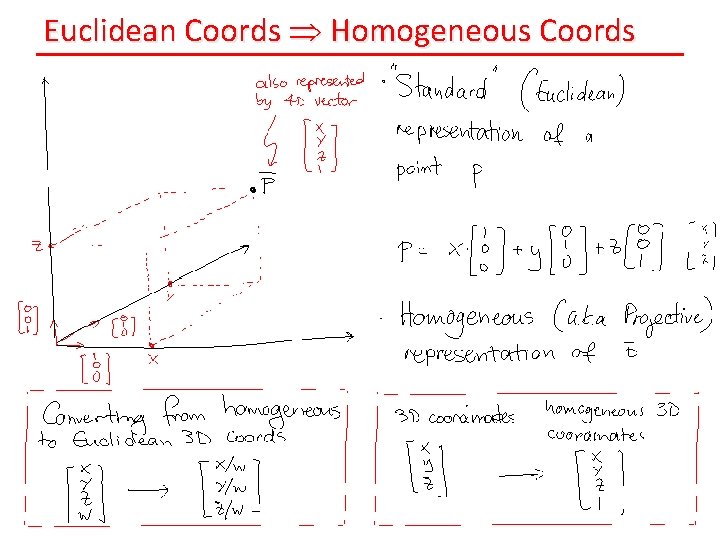 Euclidean Coords ⇒ Homogeneous Coords
also represented
by 4D vector
[x y z 1]
p̄
z
y
x
[0 0 1]
[0 1 0]
[1 0 0]
• "Standard" (Euclidean)
representation of a
point p
p = x·[1 0 0] + y[0 1 0] + z[0 0 1] [x y z]
• Homogeneous (a.k.a Projective)
representation of
Converting from homogeneous
to Euclidean 3D coords
[x y z w] → [x/w y/w z/w]
3D coordinates
[x y z]
→
homogeneous 3D
coordinates
[x y z 1]